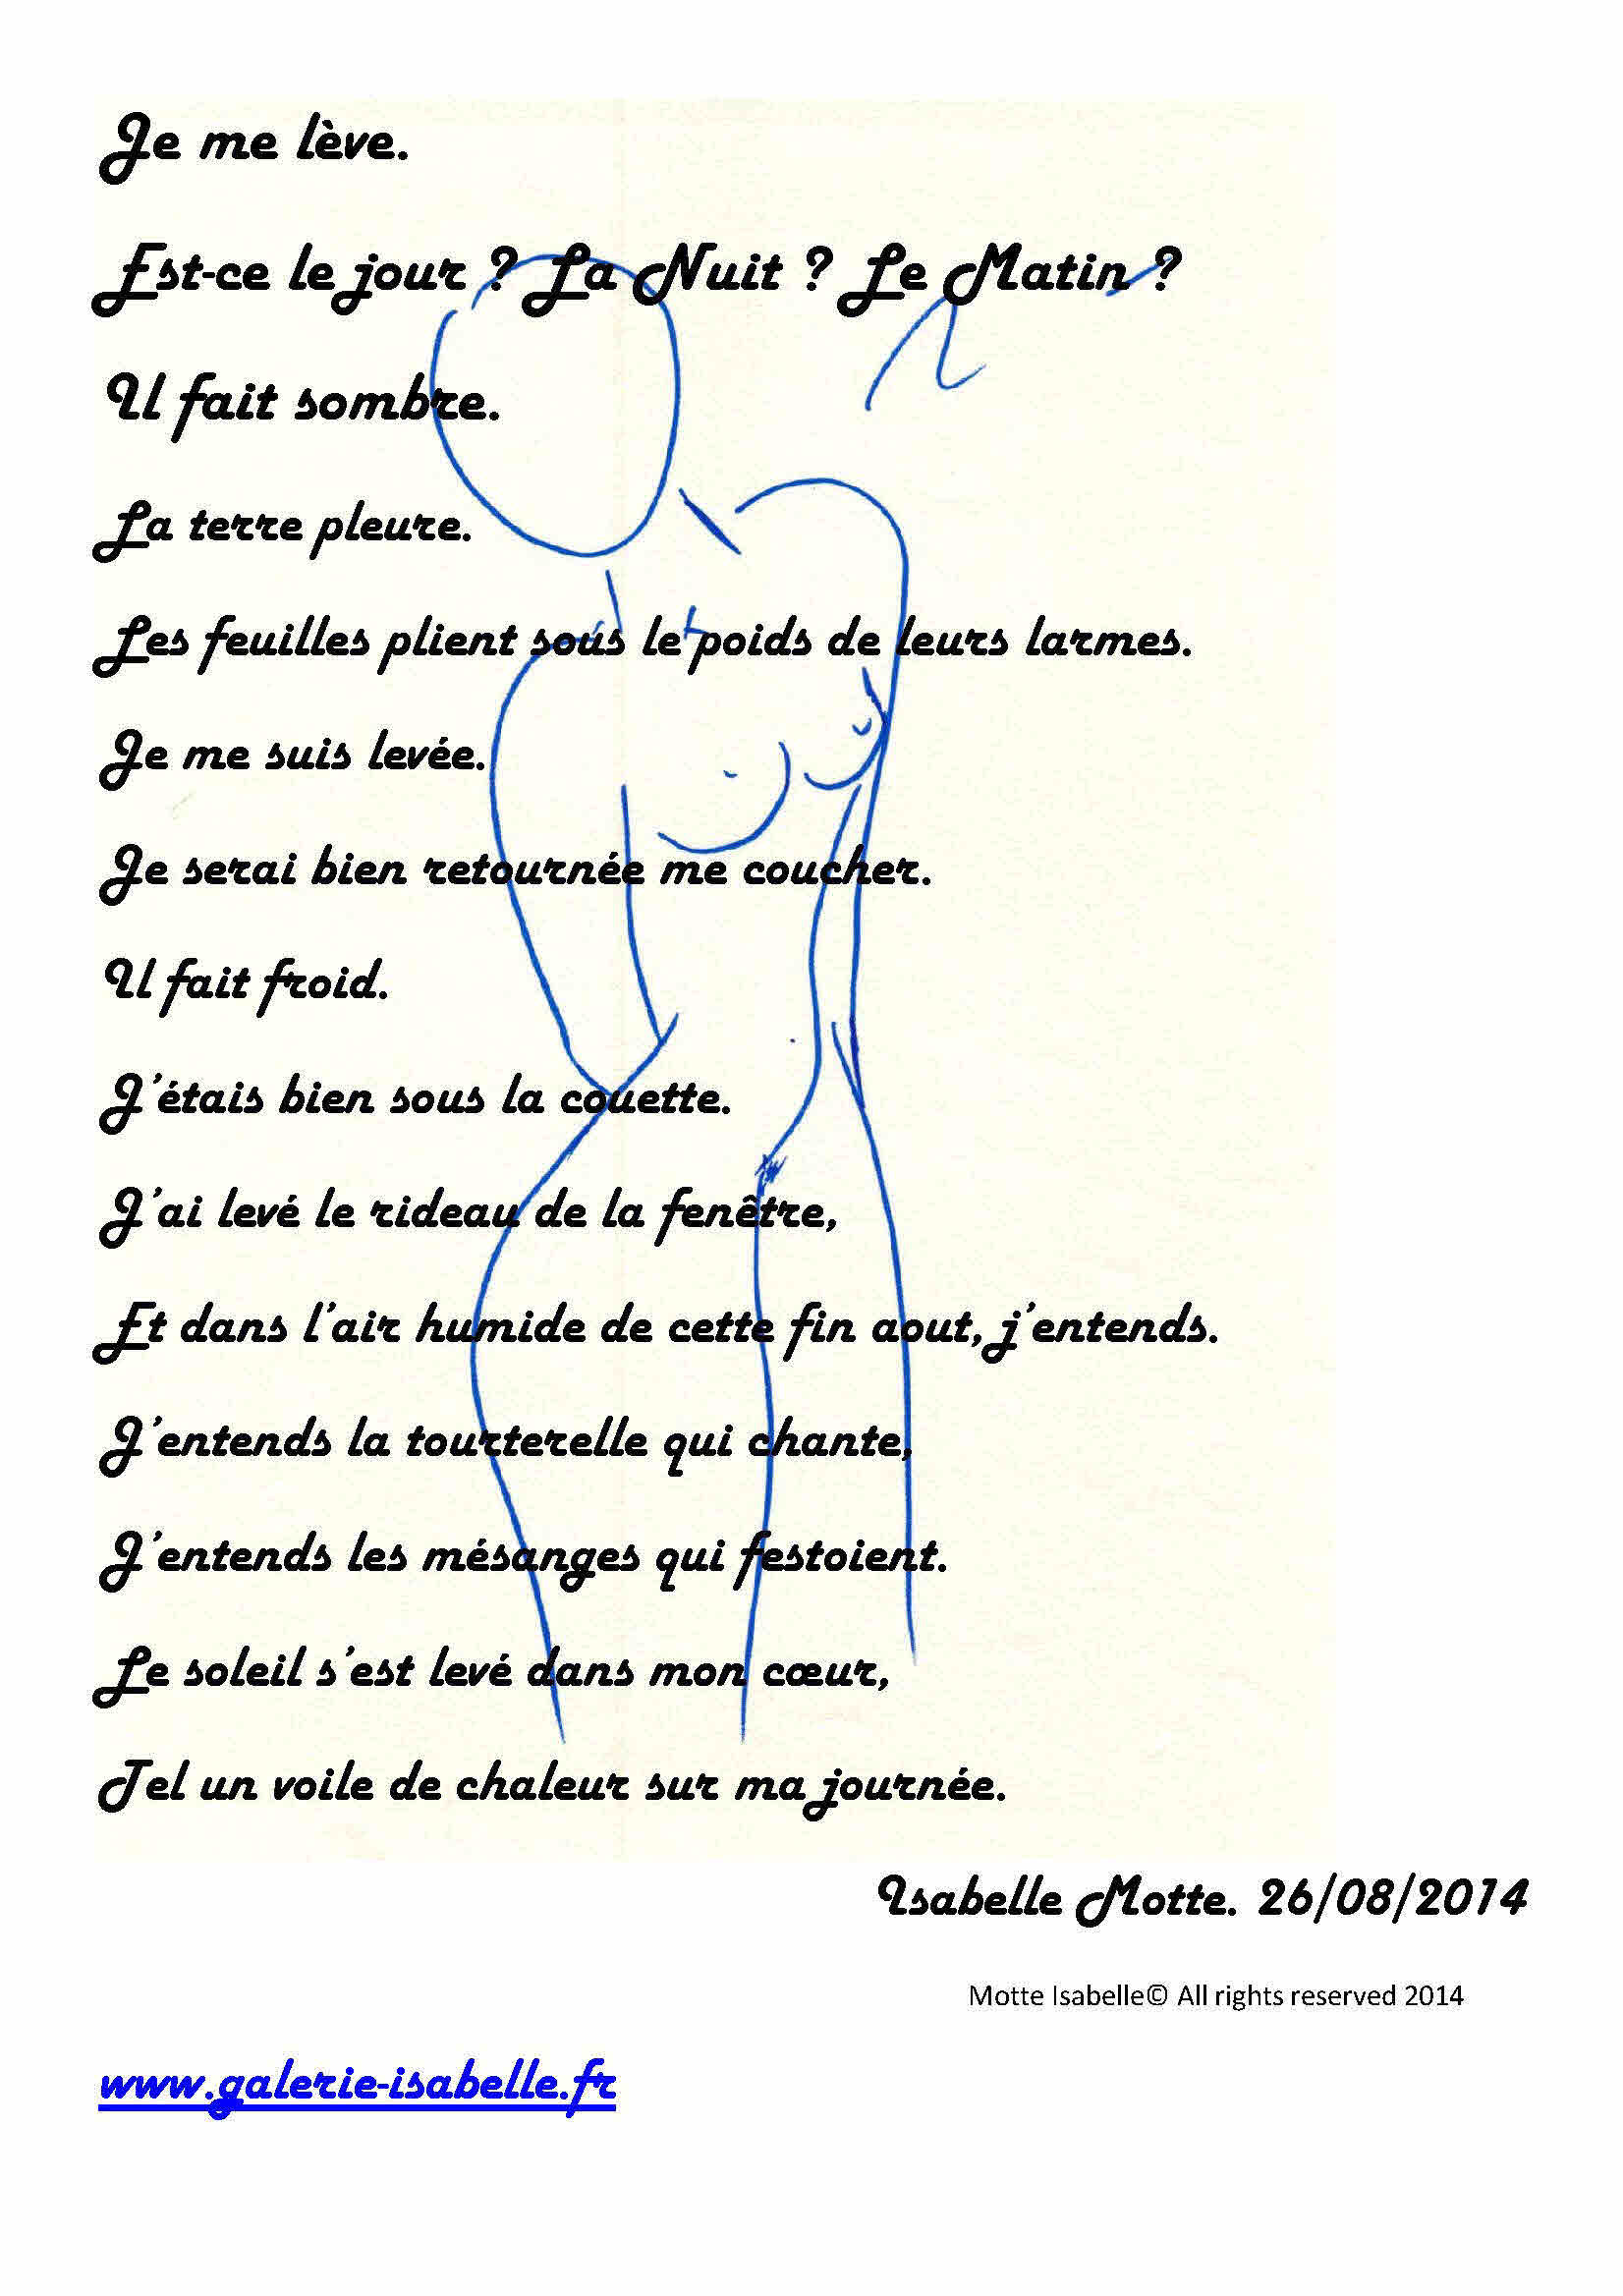 Je me lève.
Est-ce le jour ? La Nuit ? Le Matin ?
Il fait sombre.
La terre pleure.
Les feuilles plient sous le poids de leurs larmes.
Je me suis levée.
Je serai bien retournée me coucher.
Il fait froid.
J'étais bien sous la couette.
J'ai levé le rideau de la fenêtre,
Et dans l'air humide de cette fin aout, j'entends.
J'entends la tourterelle qui chante,
J'entends les mésanges qui festoient.
Le soleil s'est levé dans mon cœur,
Tel un voile de chaleur sur ma journée.
Isabelle Motte. 26/08/2014
Motte Isabelle© All rights reserved 2014
www.galerie-isabelle.fr